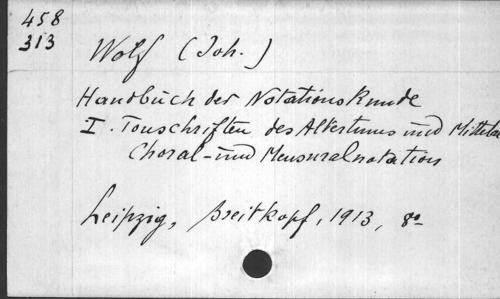 458
313
Wolf (Joh.)
Handbuch der Notationskunde
I. Tonschriften des Altertums und Mittelal
Choral- und Mensuralnotation
Leipzig, Breitkopf, 1913, 8º